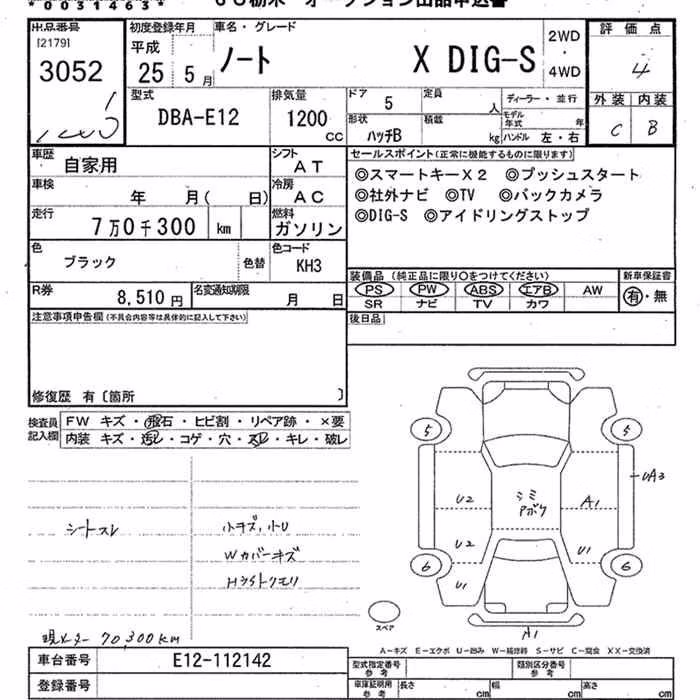 *0031463*
出品番号 初度登録年月 車名・グレード 評価点
[2179] 平成 ノート X DIG-S 2WD・4WD
3052 25年 5月 4
型式 排気量 ドア 5 定員 人 ディーラー・並行 外装 内装
DBA-E12 1200 CC 形状 ハッチB 積載 kg モデル年式 年 ハンドル 左・右 C B
車歴 自家用 シフト AT セールスポイント(正常に機能するものに限ります)
車検 年 月( 日) 冷房 AC ◎スマートキーX2 ◎プッシュスタート
走行 7万0千300 km 燃料 ガソリン ◎社外ナビ ◎TV ◎バックカメラ
◎DIG-S ◎アイドリングストップ
色 ブラック 色替 色コード KH3
R券 8,510円 名変通知期限 月 日
装備品(純正品に限り○をつけてください) 新車保証書
PS PW ABS エアB AW 有・無
SR ナビ TV カワ
注意事項申告欄(不具合内容等は具体的に記入して下さい) 後日品
修復歴 有〔箇所 〕
検査員記入欄 FW キズ・飛石・ヒビ割・リペア跡・×要
内装 キズ・汚レ・コゲ・穴・スレ・キレ・破レ
5 5
UA3
U2 シミ A1
アボク
シートスレ 小キズ,小U
U2 U1
Wカバーキズ
6 6
U1
Hライトクモリ
スペア
A1
現メーター 70,300km
A-キズ E-エクボ U-凹み W-補修跡 S-サビ C-腐食 XX-交換済
車台番号 E12-112142 型式指定番号 参考 類別区分番号 参考
登録番号 車庫証明用 参考 長さ cm 幅 cm 高さ cm